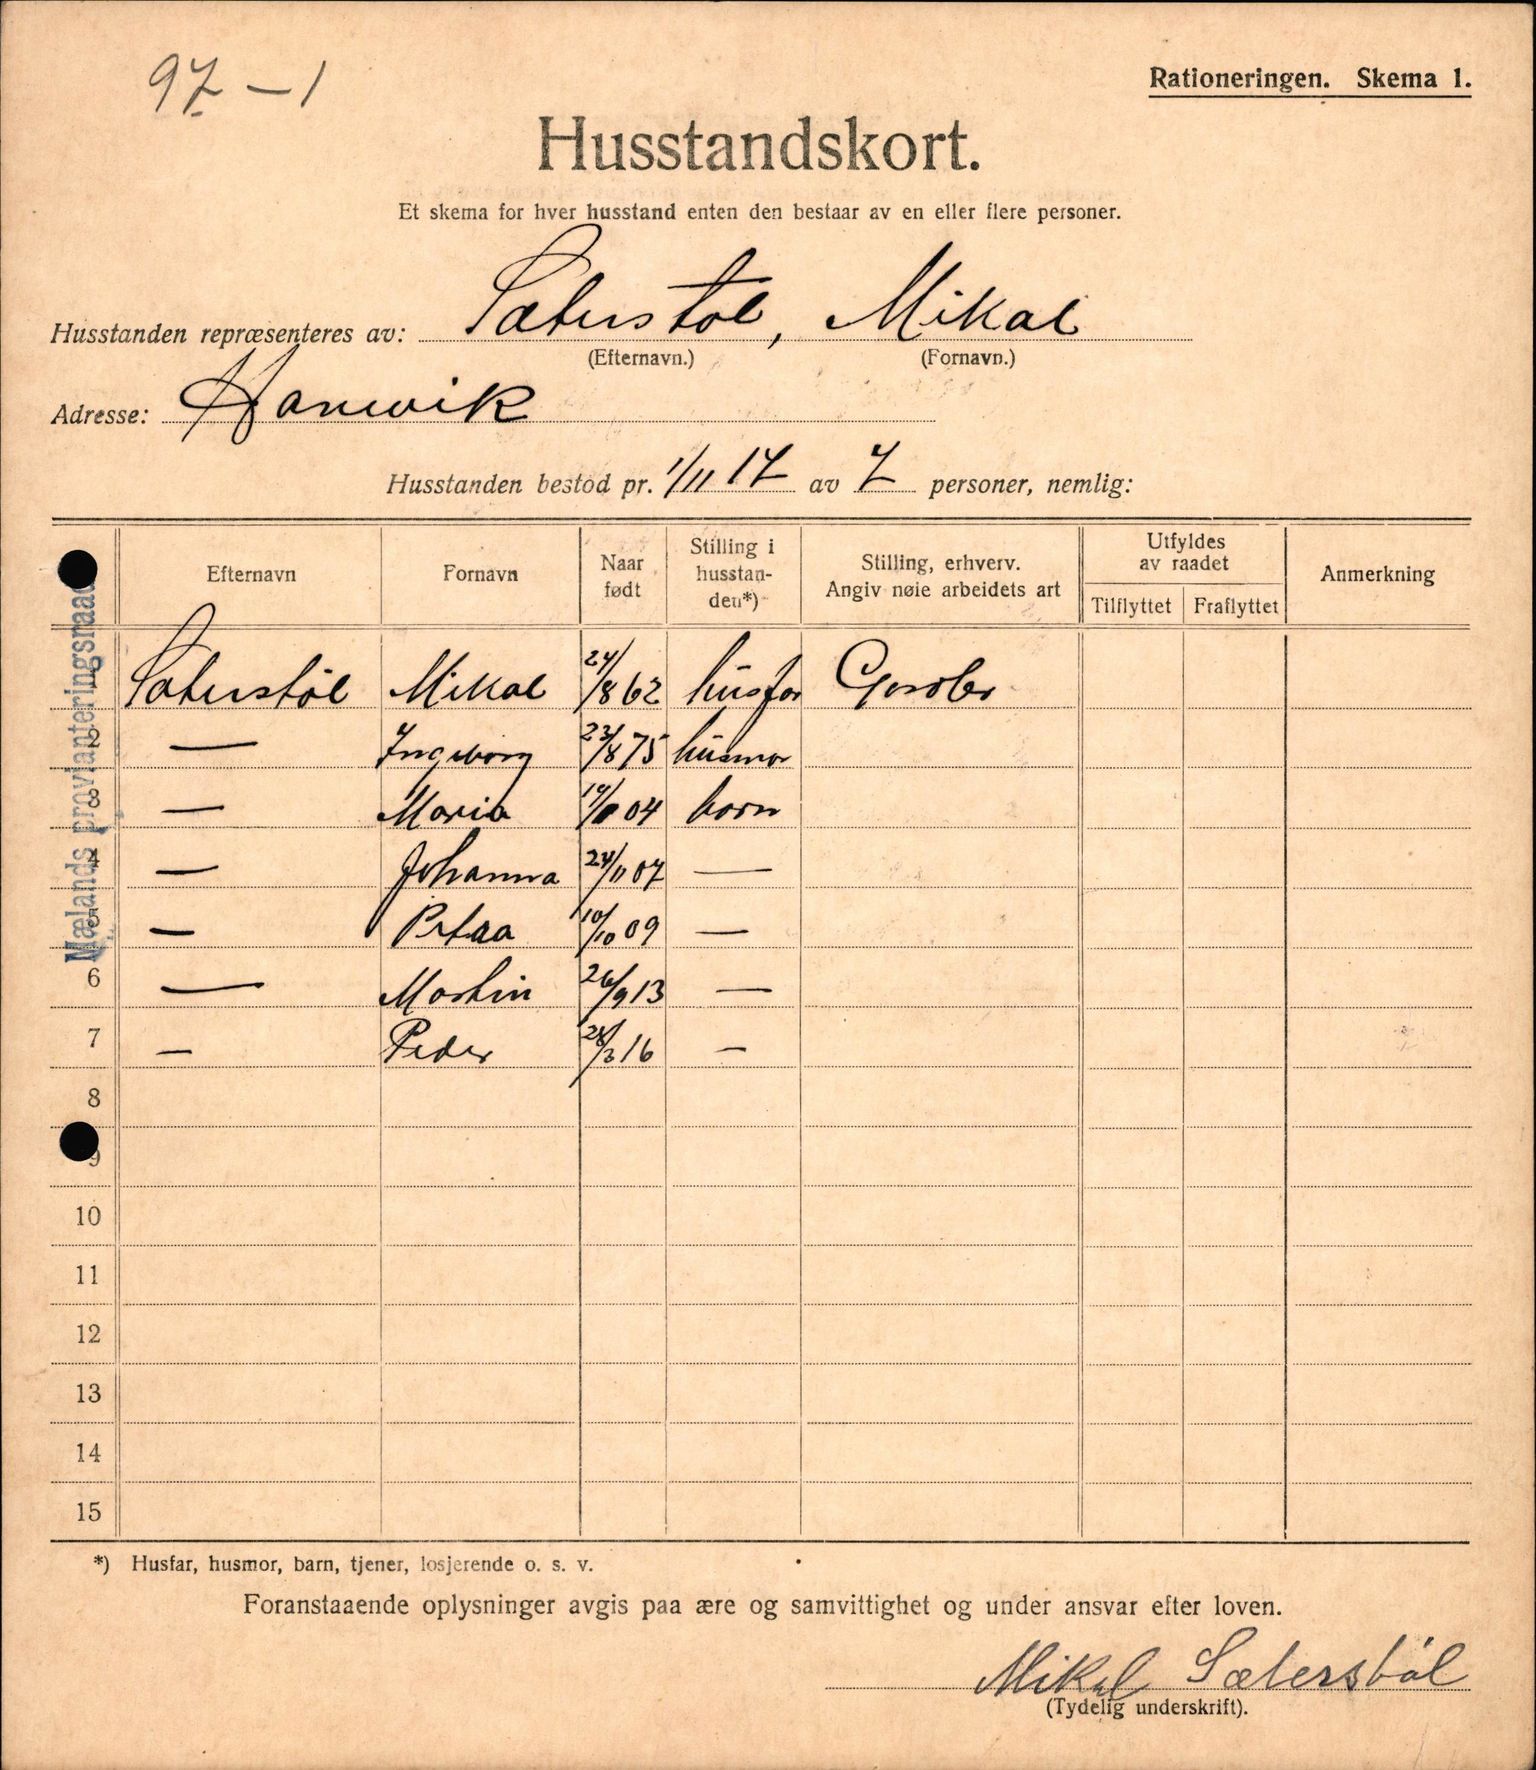 97 – 1
Rationeringen. Skema 1.
Husstandskort.
Et skema for hver husstand enten den bestaar av en eller flere personer.
Husstanden repræsenteres av: Sæterstöl, Mikal
(Efternavn.) (Fornavn.)
Adresse:
Husstanden bestod pr. 1/11 17 av 7 personer, nemlig:
Efternavn Fornavn Naar født Stilling i husstanden*) Stilling, erhverv. Angiv nøie arbeidets art Utfyldes av raadet Tilflyttet Fraflyttet Anmerkning
Mælands provianteringsraad
1 Sæterstöl Mikal 24/8 62 husfar
2 — Ingeborg 23/8 75 husmor
3 — Maria 04 barn
4 — Johanna 24/11 07 —
5 — Petra 10/10 09 —
6 — Martin 26/9 13 —
7 — Peder 16 —
8
9
10
11
12
13
14
15
*) Husfar, husmor, barn, tjener, losjerende o. s. v.
Foranstaaende oplysninger avgis paa ære og samvittighet og under ansvar efter loven.
Mikal Sætersböl
(Tydelig underskrift).